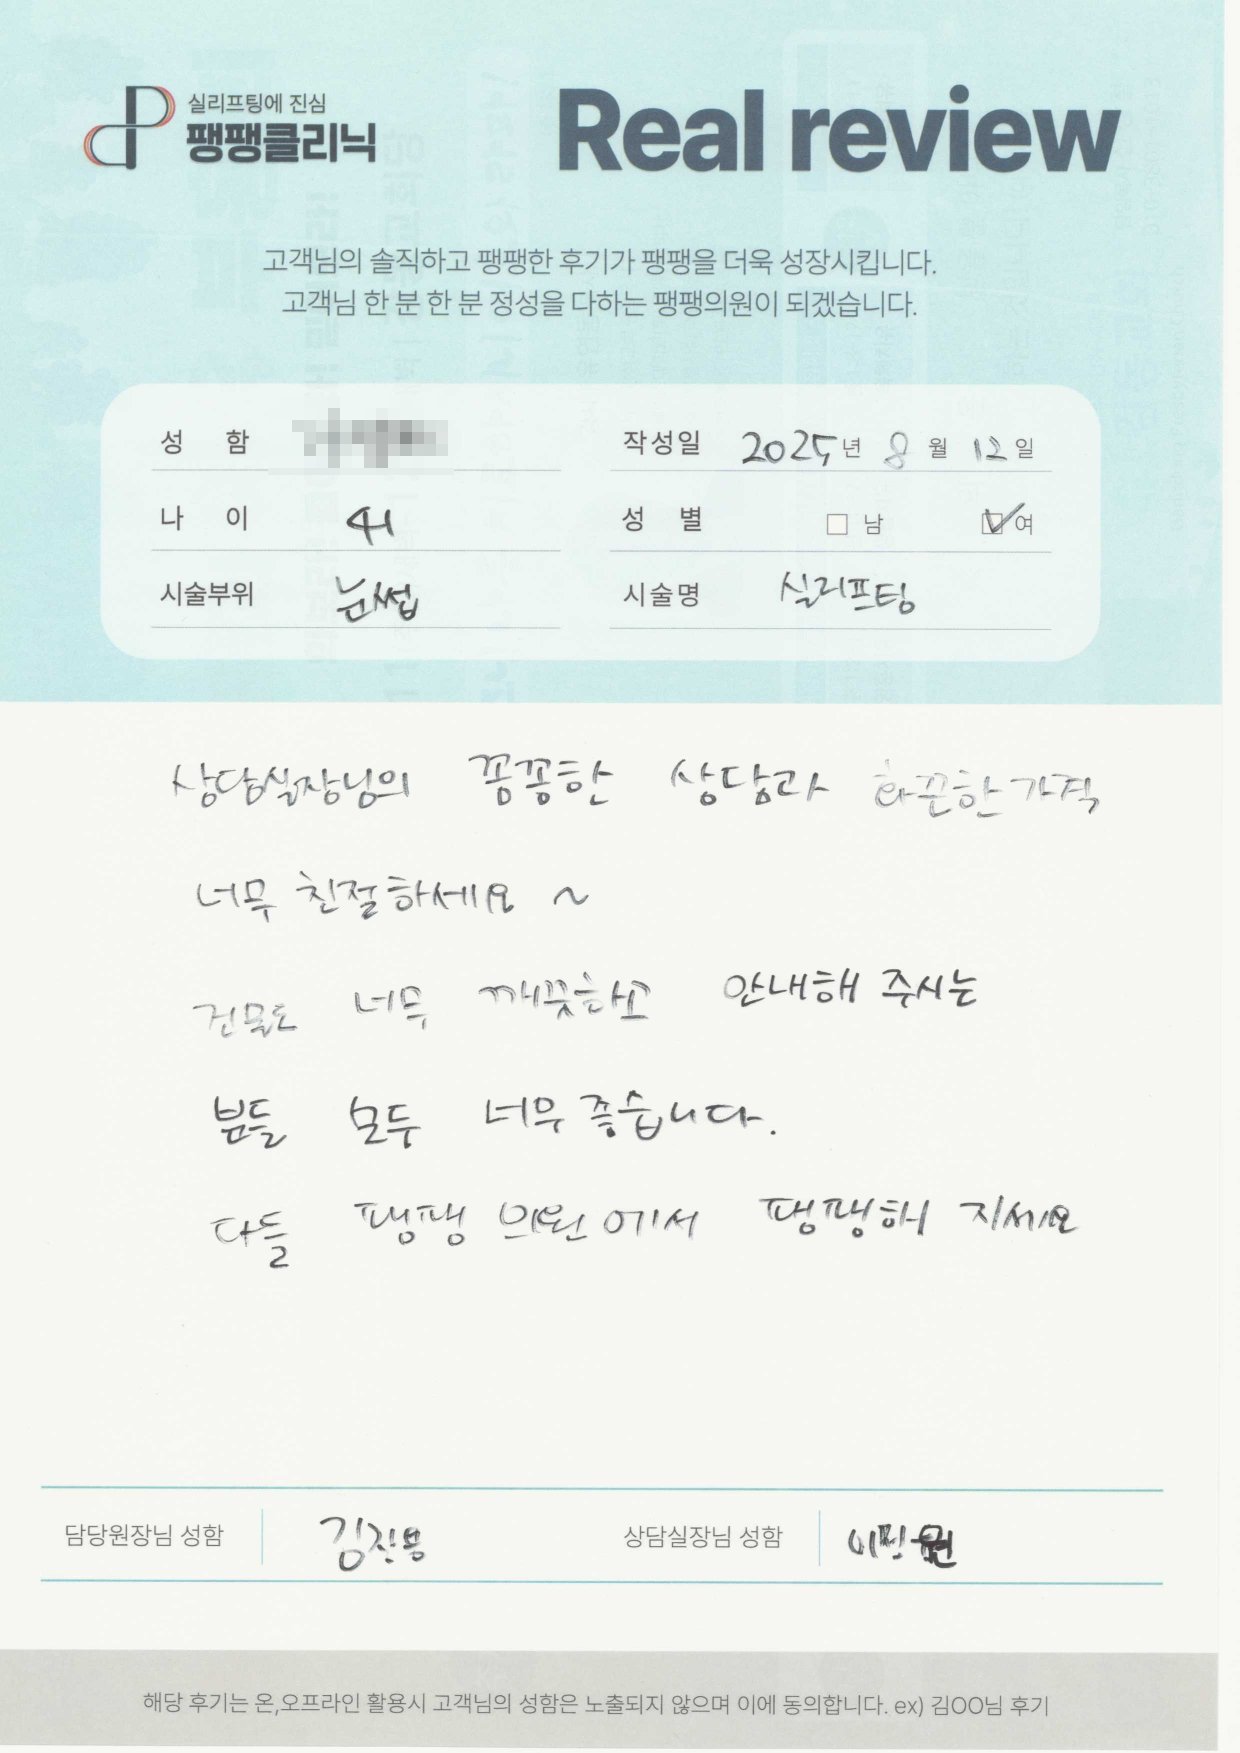 실리프팅에 진심
팽팽클리닉
Real review
고객님의 솔직하고 팽팽한 후기가 팽팽을 더욱 성장시킵니다.
고객님 한 분 한 분 정성을 다하는 팽팽의원이 되겠습니다.
성 함
작성일 2025년 8월 12일
나 이 41
성 별 남 여
시술부위 눈썹
시술명 실리프팅
상담실장님의 꽁꽁한 상담과 화끈한 가격
너무 친절하세요 ~
건물도 너무 깨끗하고 안내해 주시는
분들 모두 너무 좋습니다.
다들 팽팽 의원에서 팽팽해 지세요
담당원장님 성함 김진용
상담실장님 성함 이민원
해당 후기는 온,오프라인 활용시 고객님의 성함은 노출되지 않으며 이에 동의합니다. ex) 김OO님 후기